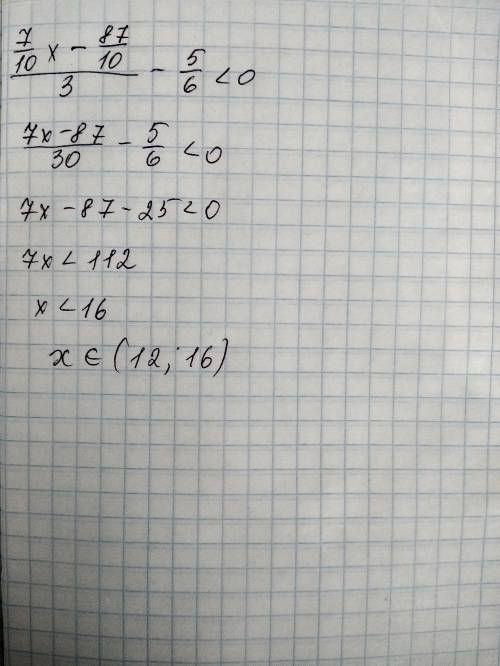 (7/10 x - 87/10)/3 - 5/6 < 0
(7x - 87)/30 - 5/6 < 0
7x - 87 - 25 < 0
7x < 112
x < 16
x ∈ (12; 16)